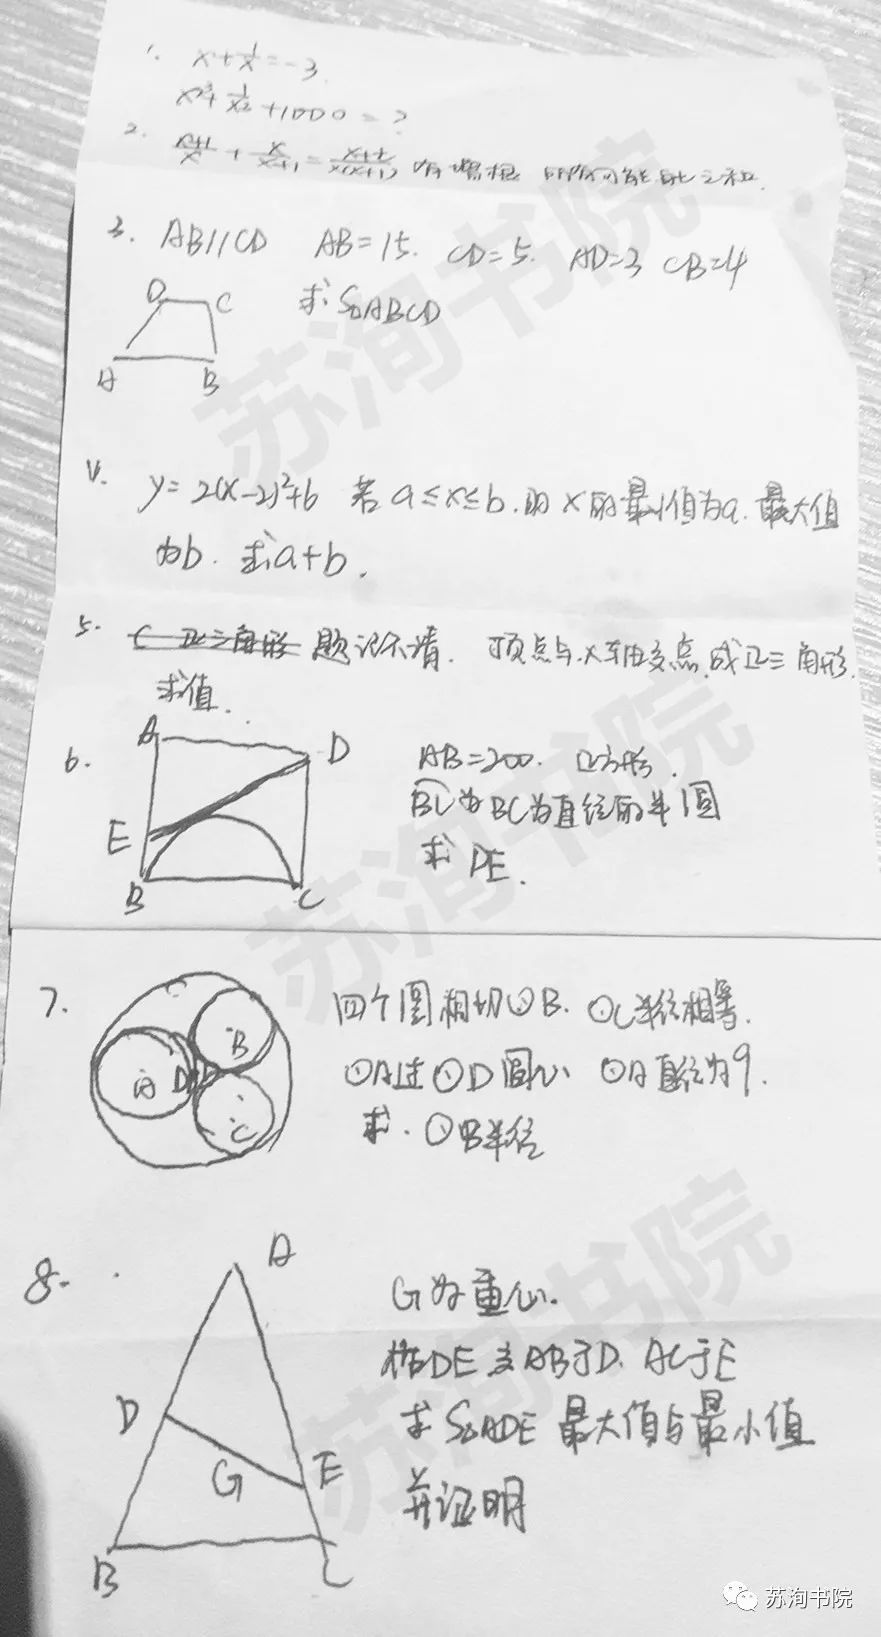 1. x+1/x=-3.
x²+1/x²+1000=?
2. (x+1)/x + x/(x+1) = /x(x+1) 有增根 之和.
3. AB//CD AB=15. CD=5. AD=3 CB=4
求 S ABCD
D C
A B
y=2(x-2)²+b 若 a≤x≤b. x的最小值为a. 最大值
为b. 求a+b.
5. 正三角形 题记不清. 顶点与x轴交点成正三角形.
求值.
6. A D AB=200. 正方形.
E BC为BC为直径的半圆
求 DE.
B C
7. 四个圆相切⊙B. ⊙C半径相等.
A B C D ⊙A过⊙D圆心 ⊙A直径为9.
求. ⊙B半径
8. A
G为重心.
DE交AB于D. AC于E
D 求S△ADE最大值与最小值
G E
并证明
B C
苏洵书院
苏洵书院
苏洵书院
苏洵书院
苏洵书院